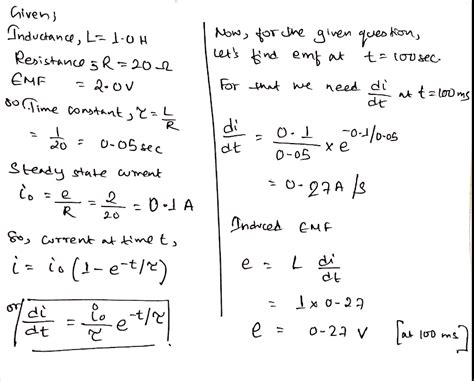 Given;
Inductance, L = 1.0 H
Resistance, R = 20 Ω
EMF = 2.0 V
so Time constant, τ = L/R
= 1/20 = 0.05 sec
Steady state current
i₀ = e/R = 2/20 = 0.1 A
So, current at time t,
i = i₀ (1 - e^-t/τ)
or di/dt = i₀/τ e^-t/τ
Now, for the given question,
let's find emf at t = 100 sec
For that we need di/dt at t = 100 ms
di/dt = 0.1/0.05 × e^-0.1/0.05
= 0.27 A/s
Induced EMF
e = L di/dt
= 1 × 0.27
e = 0.27 V [at 100 ms]